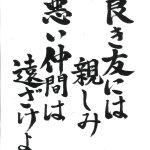 良き友には
親しみ
悪い仲間は
遠ざけよ